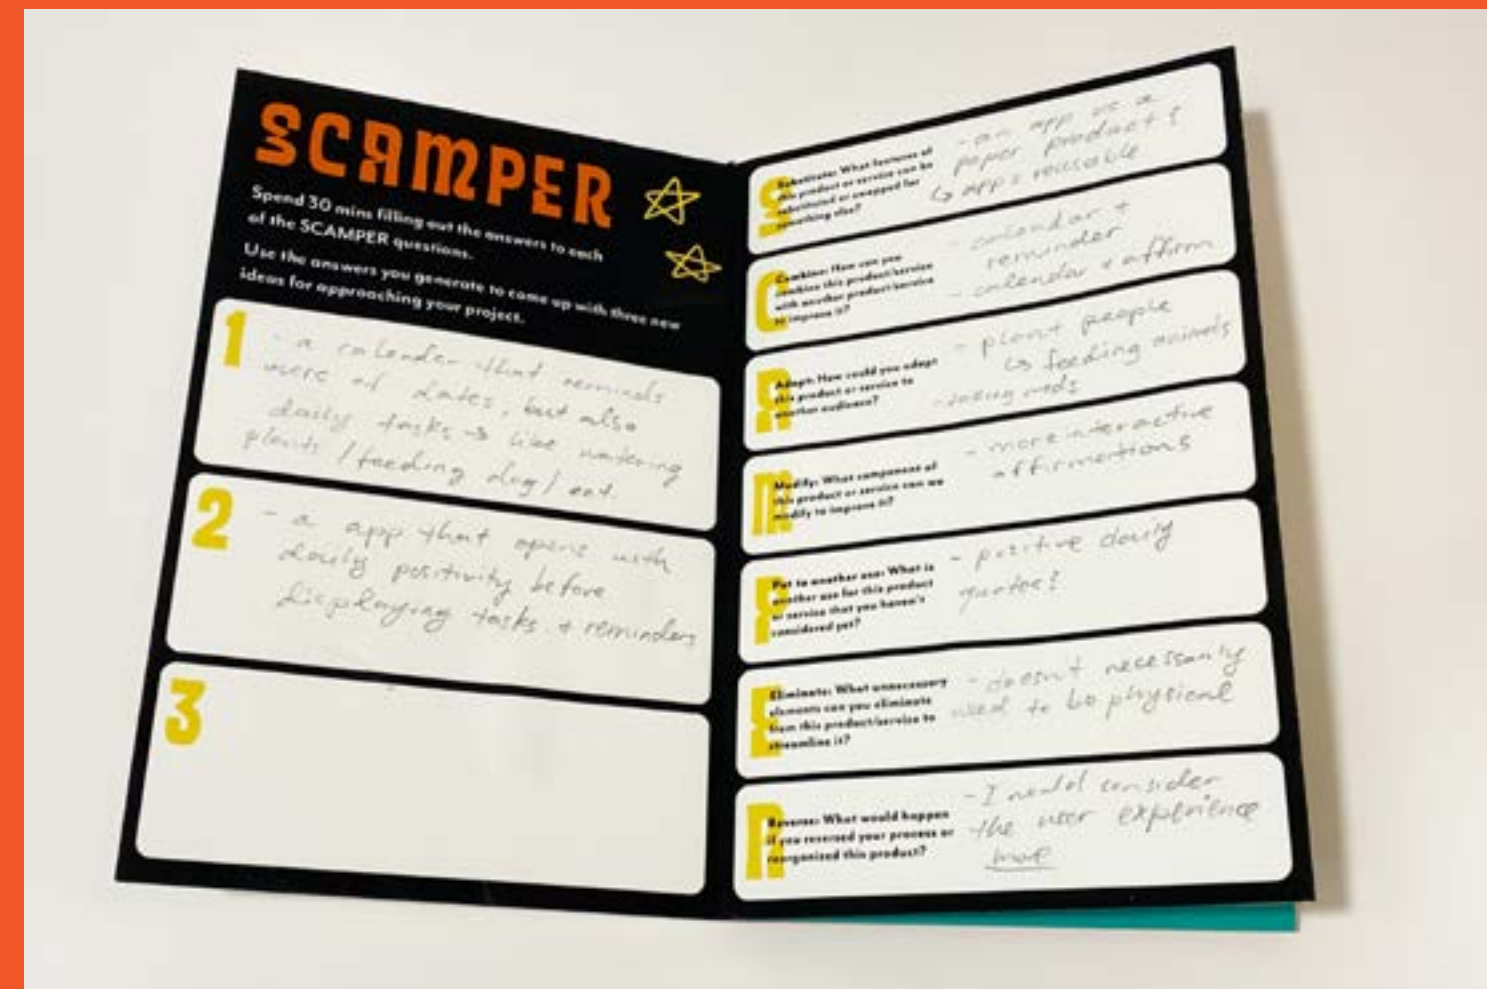 SCAMPER
Spend 30 mins filling out the answers to each
of the SCAMPER questions.
Use the answers you generate to come up with three new
ideas for approaching your project.
1
- a calender that reminds
users of dates, but also
daily tasks → like watering
plants / feeding dog / cat.
2
- a app that opens with
daily positivity before
displaying tasks + reminders
3
S
Substitute: What features of
this product or service can be
substituted or swapped for
something else?
- an app vs a
paper product?
↳ app = reusable
C
Combine: How can you
combine this product/service
with another product/service
to improve it?
- calendar +
reminder
- calendar + affirm
A
Adapt: How could you adapt
this product or service to
another audience?
- plant people
↳ feeding animals
- taking meds
M
Modify: What component of
this product or service can we
modify to improve it?
- more interactive
affirmations
P
Put to another use: What is
another use for this product
or service that you haven't
considered yet?
- positive daily
quotes?
E
Eliminate: What unnecessary
elements can you eliminate
from this product/service to
streamline it?
- doesn't necessarily
need to be physical
R
Reverse: What would happen
if you reversed your process or
reorganized this product?
- I would consider
the user experience
more